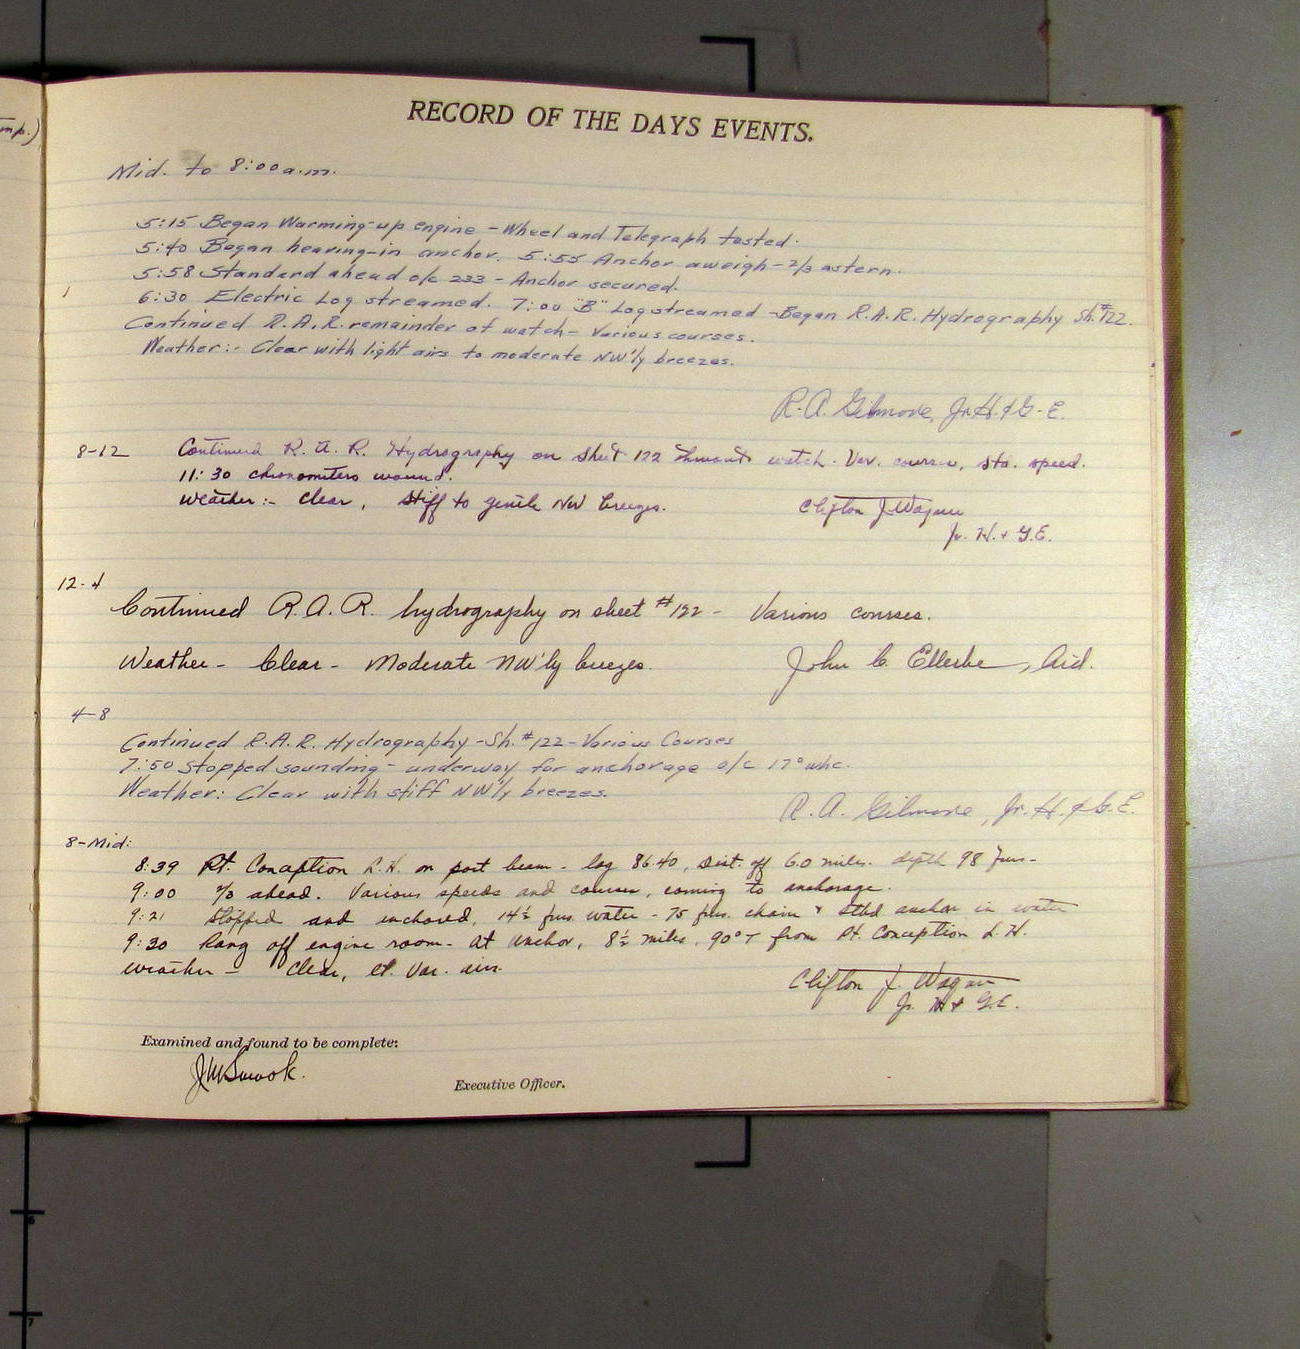 mp.)
RECORD OF THE DAYS EVENTS.
Mid. to 8:00 a.m.
5:15 Began Warming-up engine - Wheel and Telegraph tested.
5:40 Began heaving-in anchor. 5:55 Anchor aweigh - 2/3 astern.
5:58 Standard ahead o/c 233 - Anchor secured.
6:30 Electric Log streamed. 7:00 "B" Log streamed - Began R.A.R. Hydrography Sh. #122.
Continued R.A.R. remainder of watch - Various courses.
Weather:- Clear with light airs to moderate NW'ly breezes.
R. A. Gilmore, Jr. H. & G. E.
8-12 Continued R. A. R. Hydrography on sheet 122 thruout watch. Var. courses, sta. speed.
11:30 chronometers wound.
Weather:- Clear, stiff to gentle NW breezes.
Clifton J. Wagner
Jr. H. & G.E.
12-4
Continued R.A.R. hydrography on sheet #122 - Various courses.
Weather - Clear - Moderate NW'ly breezes.
John C. Ellerbe, Aid.
4-8
Continued R.A.R. Hydrography - Sh. #122 - Various Courses
7:50 Stopped sounding - underway for anchorage o/c 17°
Weather: Clear with stiff NW'ly breezes.
R. A. Gilmore, Jr. H. & G. E.
8-Mid:
8:39 Pt. Conception L.H. on port beam - log 86.40, dist. off 6.0 miles. depth 98 fms-
9:00 2/3 ahead. Various speeds and courses, coming to anchorage.
9:21 Stopped and anchored, 14½ fms. water - 75 fms. chain & stbd anchor in water
9:30 Rang off engine room - At anchor, 8½ miles, 90°T from Pt. Conception L.H.
Weather - Clear, lt. Var. airs.
Clifton J. Wagner
Jr. H & G.E.
Examined and found to be complete:
Executive Officer.
6
7